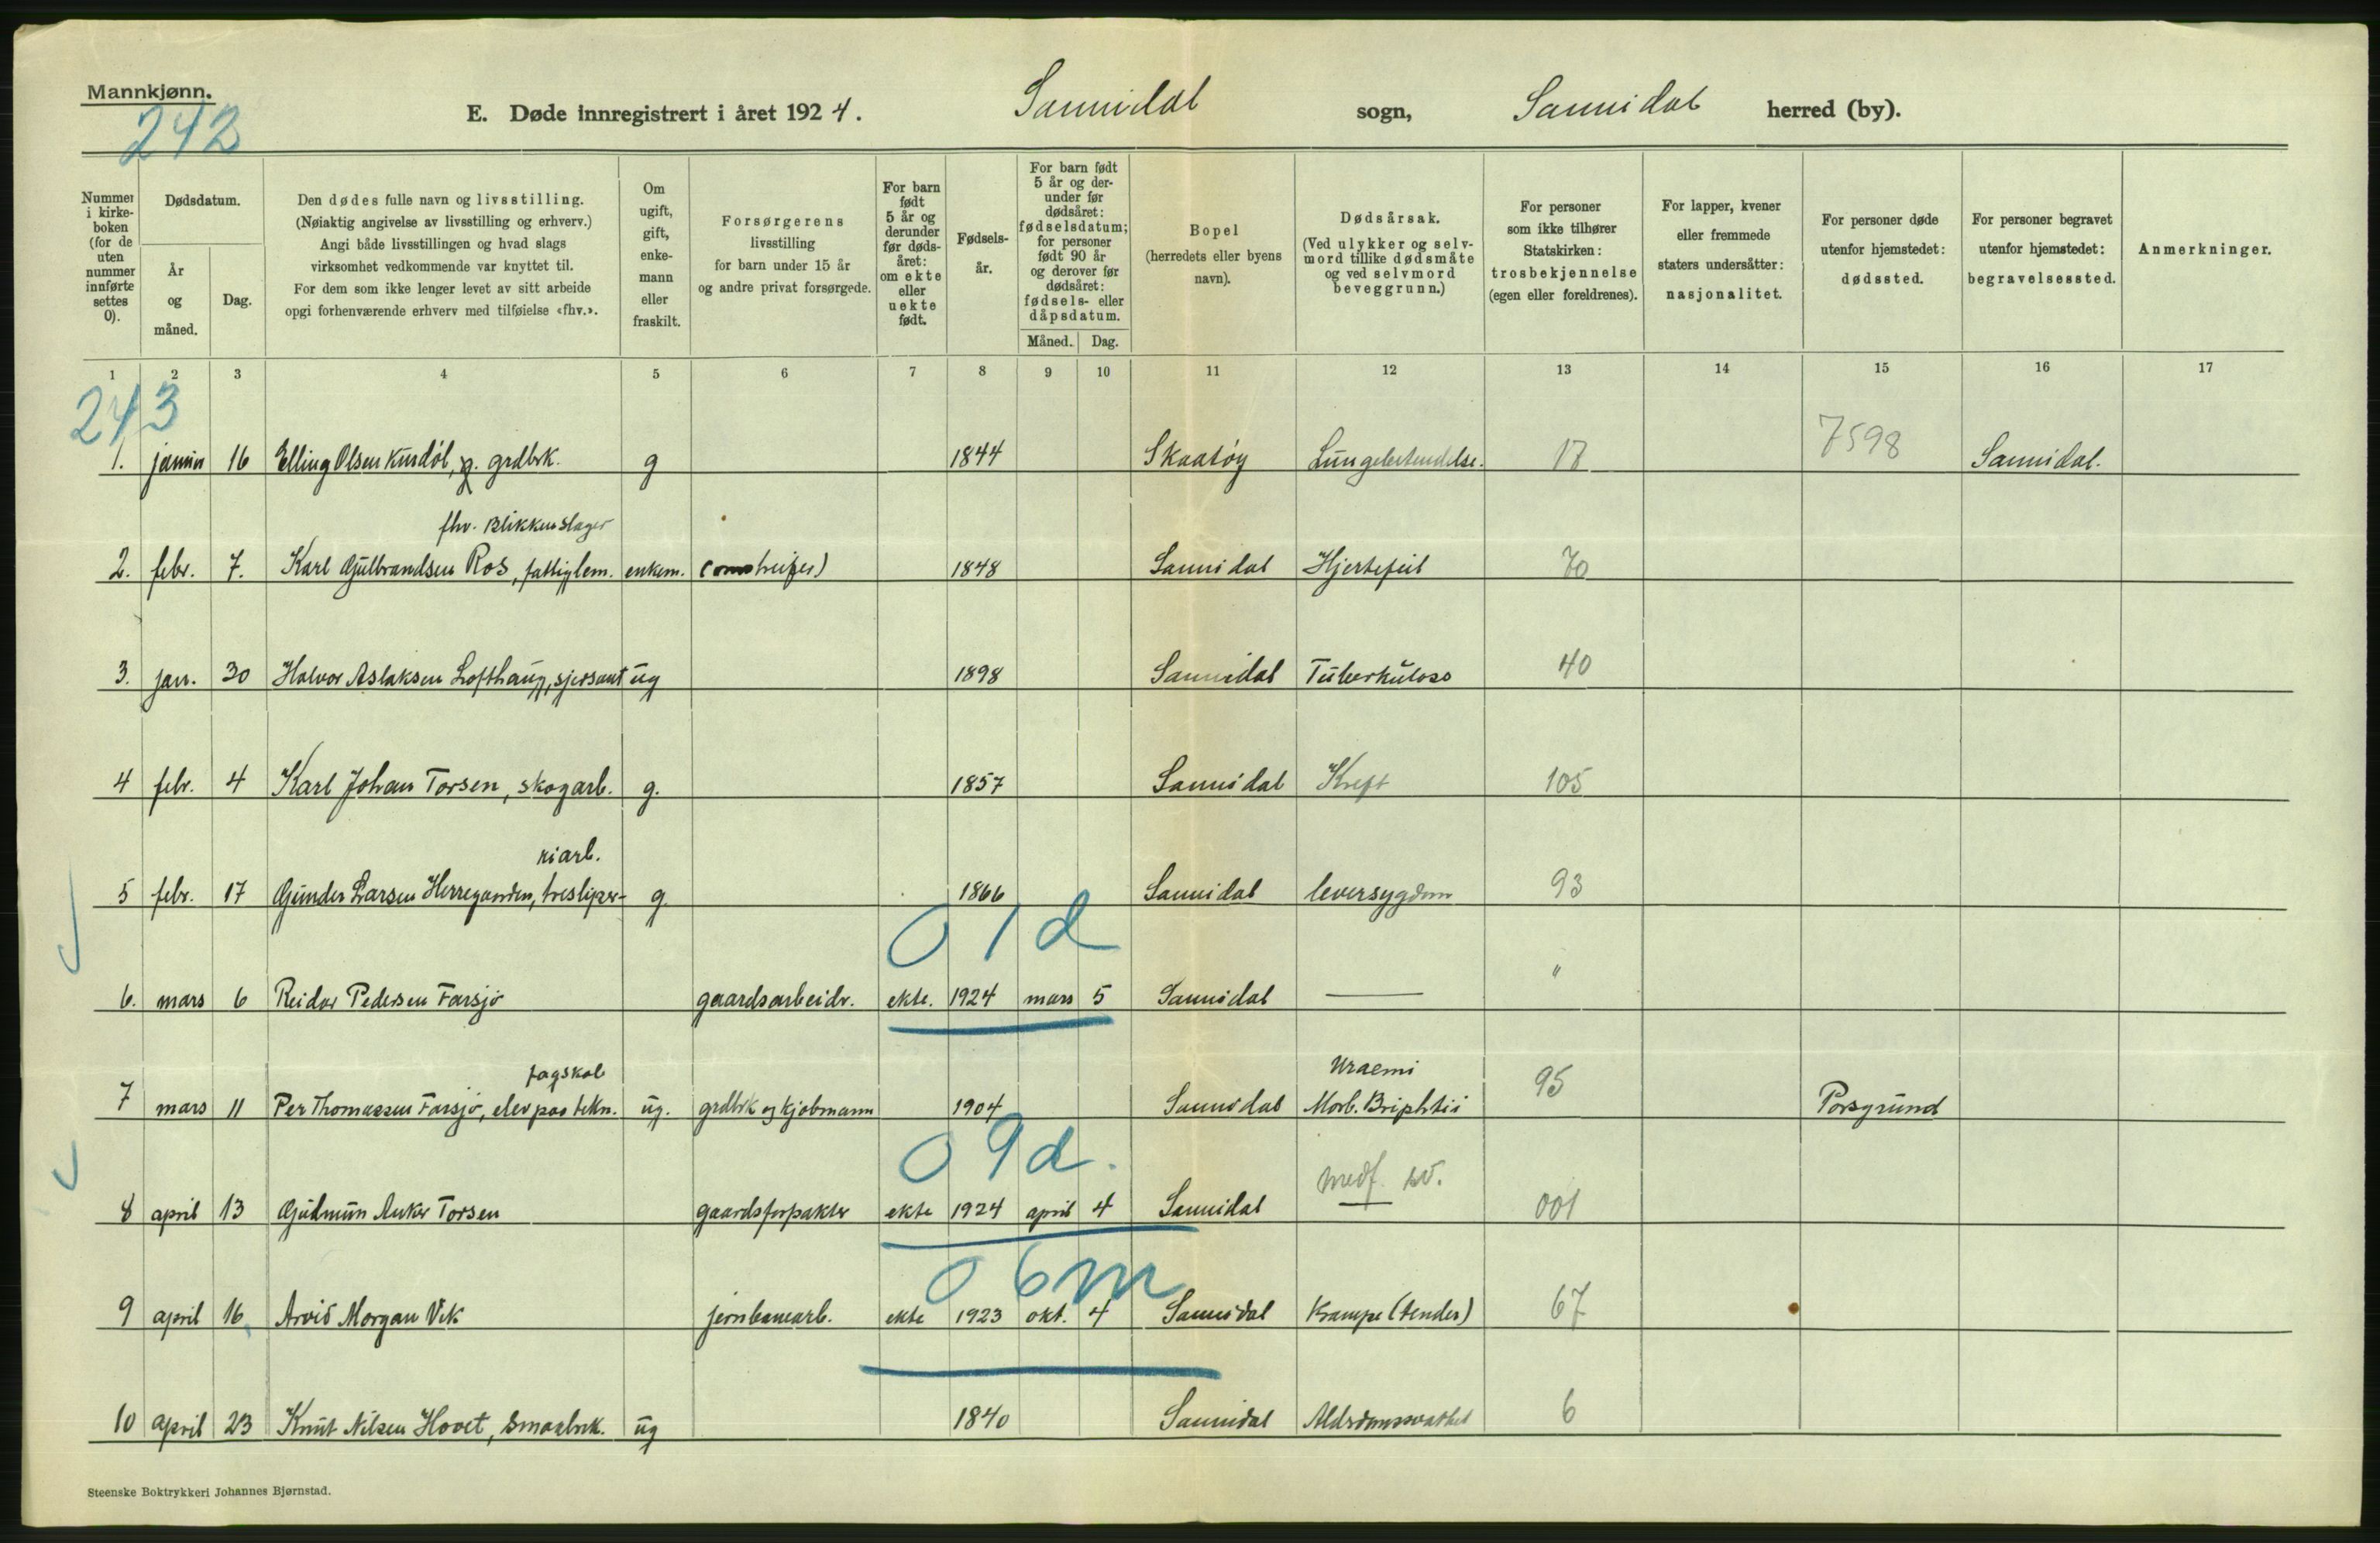 Mannkjønn.
242
E. Døde innregistrert i året 1924. Sannidal sogn, Sannidal herred (by).
Nummer i kirke-boken (for de uten nummer innførte settes 0).
Dødsdatum.
År og måned.
Dag.
Den dødes fulle navn og livsstilling.
(Nøiaktig angivelse av livsstilling og erhverv.)
Angi både livsstillingen og hvad slags
virksomhet vedkommende var knyttet til.
For dem som ikke lenger levet av sitt arbeide
opgi forhenværende erhverv med tilføielse «fhv.».
Om ugift, gift, enke-mann eller fraskilt.
Forsørgerens
livsstilling
for barn under 15 år
og andre privat forsørgede.
For barn født 5 år og derunder før døds-året: om ekte eller uekte født.
Fødsels-år.
For barn født 5 år og der-under før dødsåret: fødselsdatum; for personer født 90 år og derover før dødsåret: fødsels- eller dåpsdatum.
Måned. Dag.
Bopel
(herredets eller byens
navn).
Dødsårsak.
(Ved ulykker og selv-
mord tillike dødsmåte
og ved selvmord
beveggrunn.)
For personer
som ikke tilhører
Statskirken:
trosbekjennelse
(egen eller foreldrenes).
For lapper, kvener
eller fremmede
staters undersåtter:
nasjonalitet.
For personer døde
utenfor hjemstedet:
dødssted.
For personer begravet
utenfor hjemstedet:
begravelsessted.
Anmerkninger.
1 2 3 4 5 6 7 8 9 10 11 12 13 14 15 16 17
243
1. 16 Elling Olsen Kurdøl, g. grdbrk. g 1844 Skaatøy Lungebetendelse. 17 7598 Sannidal.
fhv. Blikkenslager
2. febr. 7. Karl Gulbrandsen Ros, fattiglem. enkem. 1848 Sannidal Hjertefeil 70
3. jan. 30 Halvor Aslaksen Lofthaug, sjersant ug 1898 Sannidal Tuberkulose 40
4 febr. 4 Karl Johan Torsen, skogarb. g. 1857 Sannidal Kreft 105
riarb.
5 febr. 17 Gunder Larsen Herregaarden, tresliper- g. 1866 Sannidal leversygdom 93
0 1 d
6. mars 6 Reidar Pedersen Farsjø gaardsarbeidr. ekte. 1924 mars 5 Sannidal — "
fagskol
Uraemi
7 mars 11 Per Thomassen Farsjø, elev paa tekn. ug. grdbrk og kjøbmann 1904 Sannidal Morb. Brightii 95 Porsgrund
0 9 d.
medf. sv.
8 april 13 Gudmun Anker Torsen gaardsforpakter ekte 1924 april 4 Sannidal — 001
0 6 m
9 april 16 Arvid Morgan Vik jernbanearb. ekte 1923 okt. 4 Sannidal Krampe (tender) 67
10 april 23 Knut Nilsen Hovet, smaabrk. ug 1840 Sannidal Alderdomssvakhet 6
Steenske Boktrykkeri Johannes Bjørnstad.